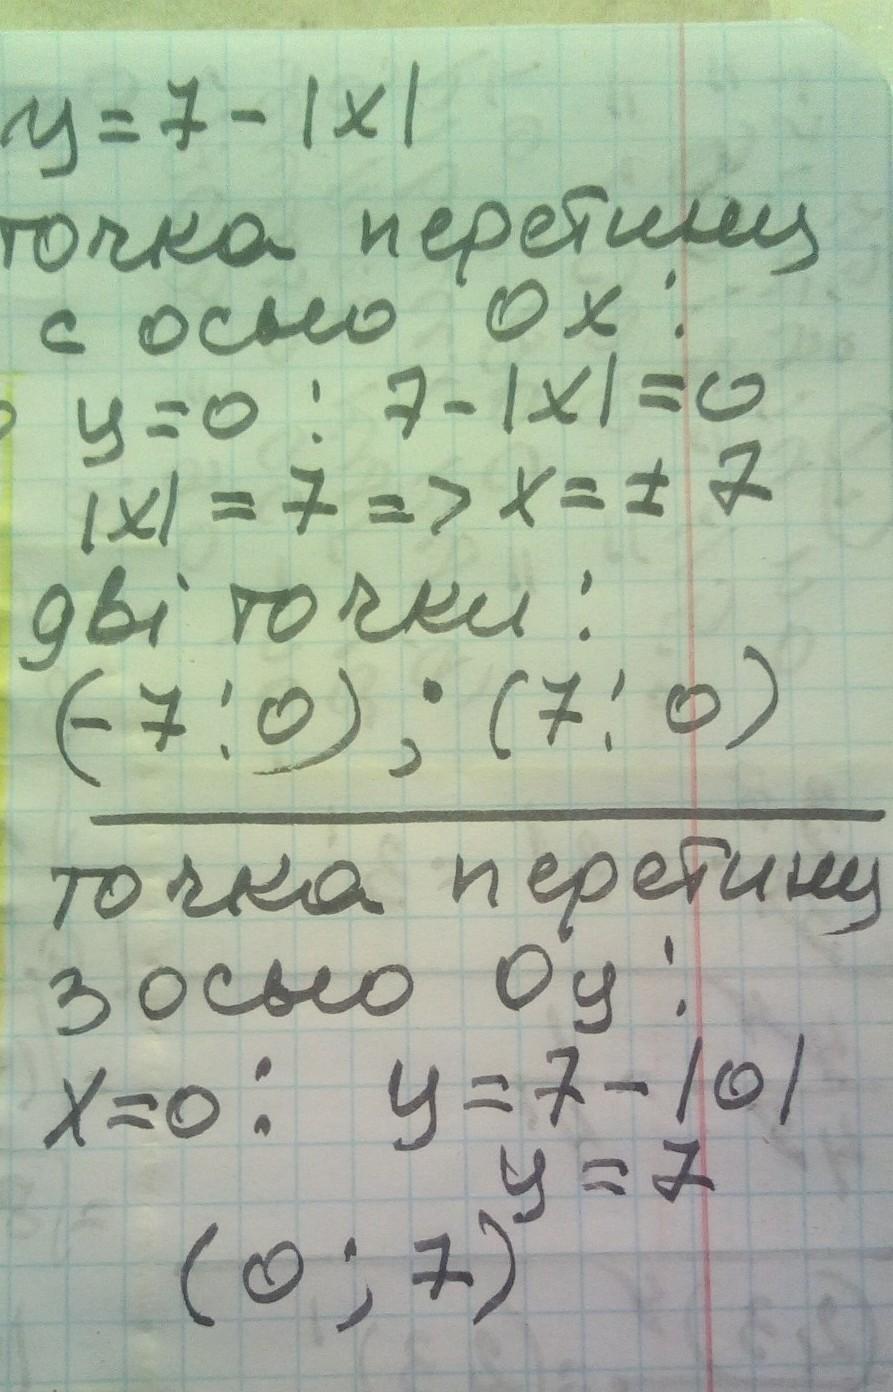 y = 7 - |x|
точка перетину
с осью Ox:
y=0: 7-|x|=0
|x| = 7 => x = ± 7
дві точки:
(-7:0); (7:0)
точка перетину
з осью Oy:
x=0: y=7-|0|
y=7
(0;7)